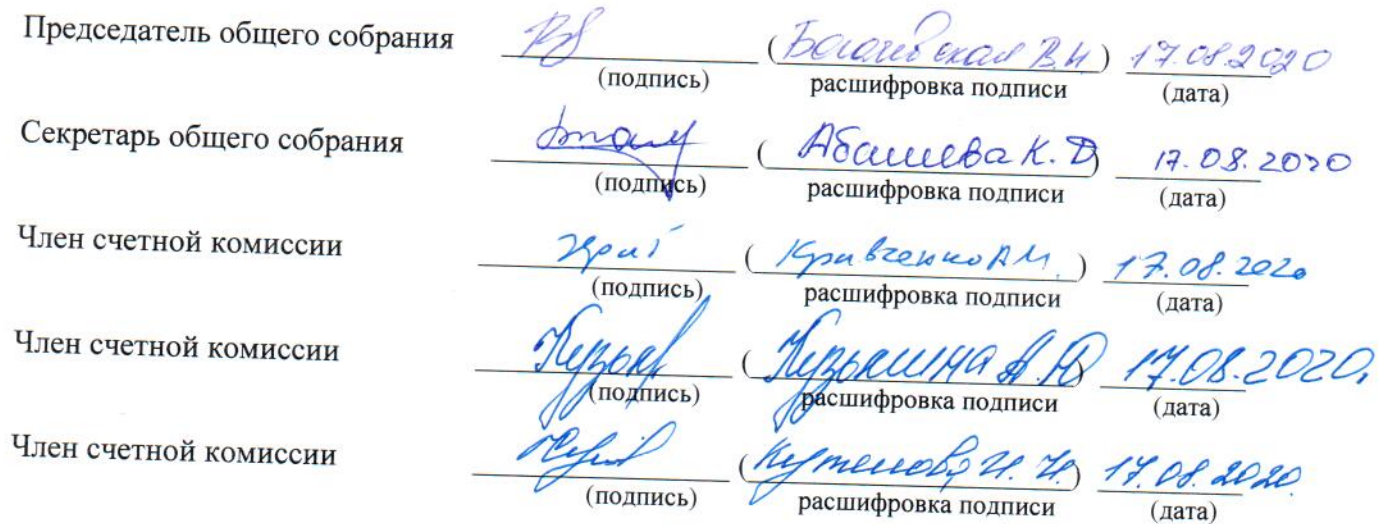 Председатель общего собрания (Богачевская В.Н) 17.08.2020
(подпись) расшифровка подписи (дата)
Секретарь общего собрания (Абашева К. Д) 17.08.2020
(подпись) расшифровка подписи (дата)
Член счетной комиссии (Кравченко А.М.) 17.08.2020
(подпись) расшифровка подписи (дата)
Член счетной комиссии (Кузькина А.Д) 17.08.2020.
(подпись) расшифровка подписи (дата)
Член счетной комиссии (Н. Н.) 17.08.2020
(подпись) расшифровка подписи (дата)